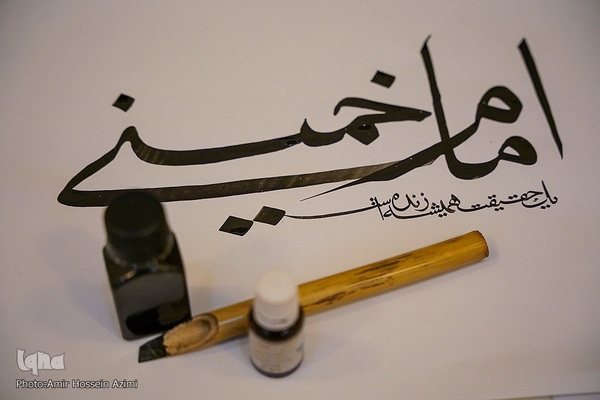 امام خمینی
یک حقیقت همیشه زنده است
iqna
Photo:Amir Hossein Azimi